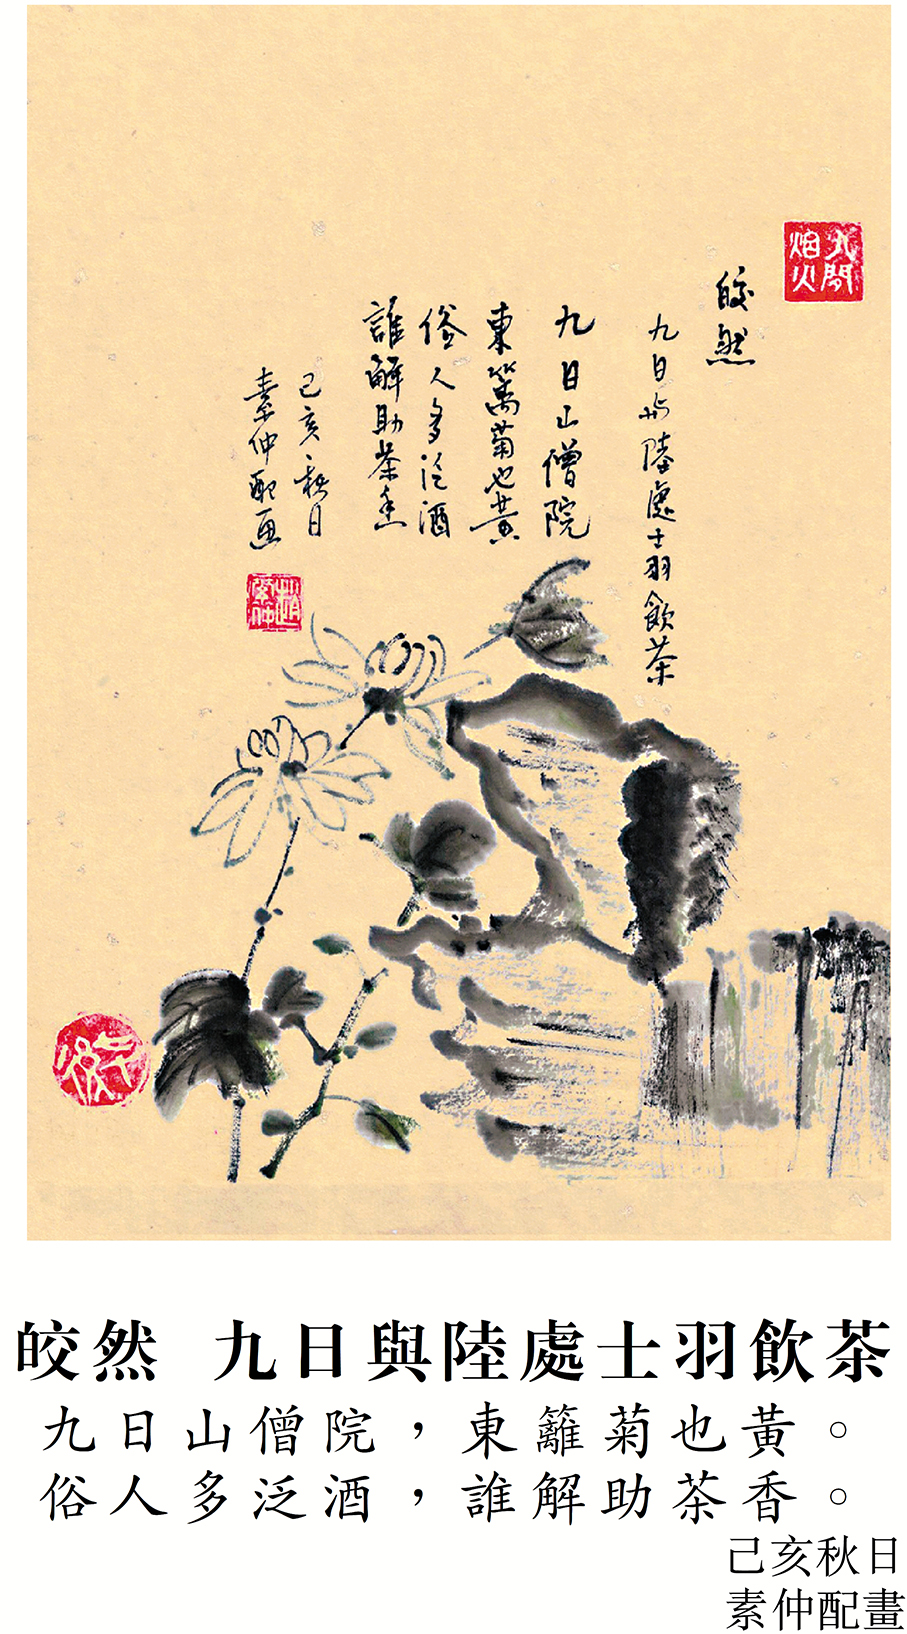 人間
烟火
皎然
九日与陸處士羽飲茶
九日山僧院
東篱菊也黃
俗人多泛酒
誰解助茶香
己亥秋日
素仲配画
趙素仲
皎然 九日與陸處士羽飲茶
九日山僧院，東籬菊也黃。
俗人多泛酒，誰解助茶香。
己亥秋日
素仲配畫